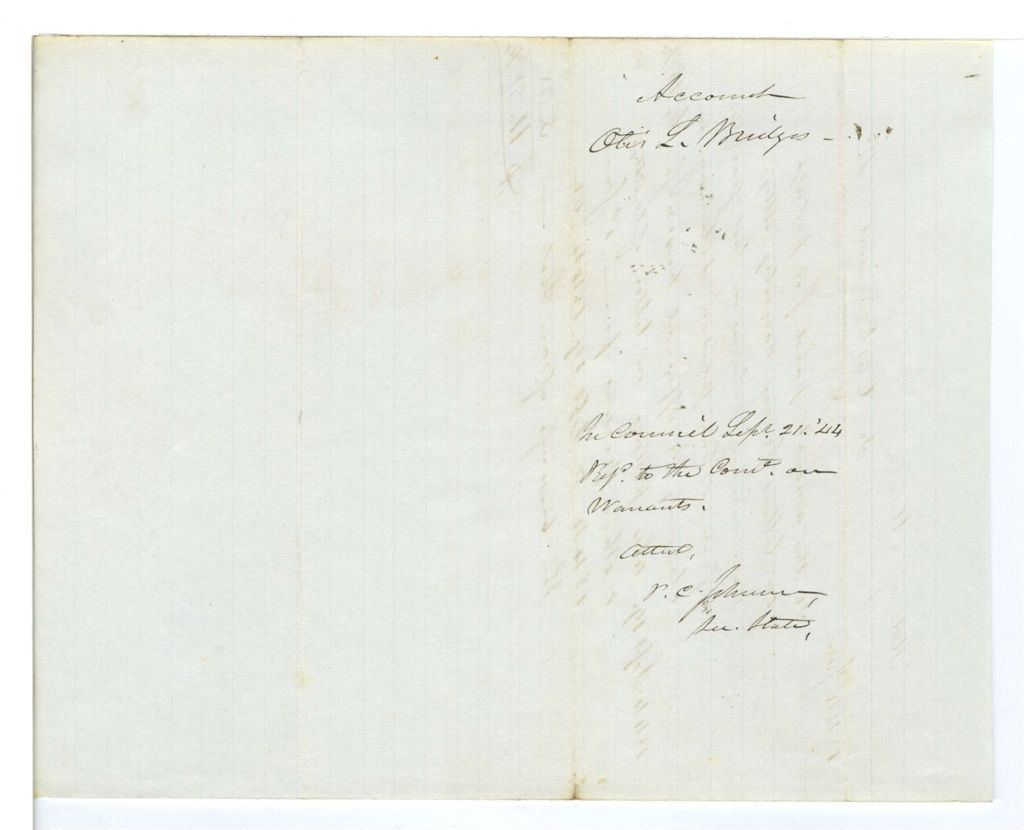 Account
Otis L. Bridges -
In Council Sept. 21. '44
Ref. to the Comt. on
Warrants.
Attest,
P. C. Johnson,
Sec. State,